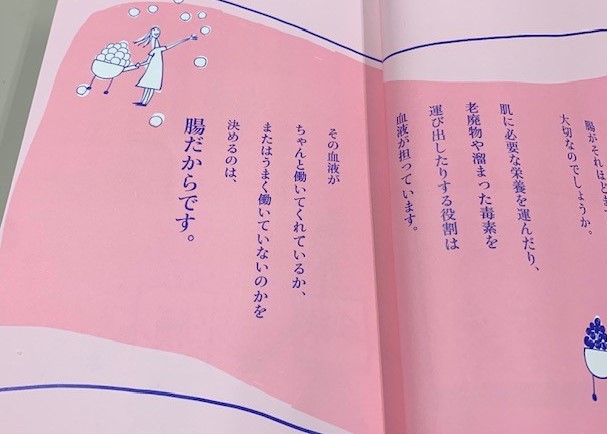 腸がそれほどま
大切なのでしょうか。
肌に必要な栄養を運んだり、
老廃物や溜まった毒素を
運び出したりする役割は
血液が担っています。
その血液が
ちゃんと働いてくれているか、
またはうまく働いていないのかを
決めるのは、
腸だからです。